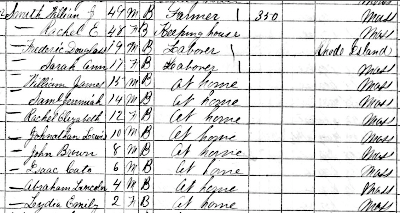 Smith William G 49 M B Farmer 1 350 Mass
— Rachel E. 48 F B Keeping house Mass
— Frederic Douglass 19 M B Laborer 1 Rhode Island
— Sarah Ann 17 F B Laborer 1 Mass
— William James 15 M B At home Mass
— Saml Jeremiah 14 M B At home Mass
— Rachel Elizabeth 12 F B At home Mass
— Johnathan Lewis 10 M B At home Mass
— John Brown 8 M B At home Mass
— Isaac Cato 6 M B At home Mass
— Abraham Lincoln 4 M B At home Mass
— Lydia Emily 2 F B At home Mass